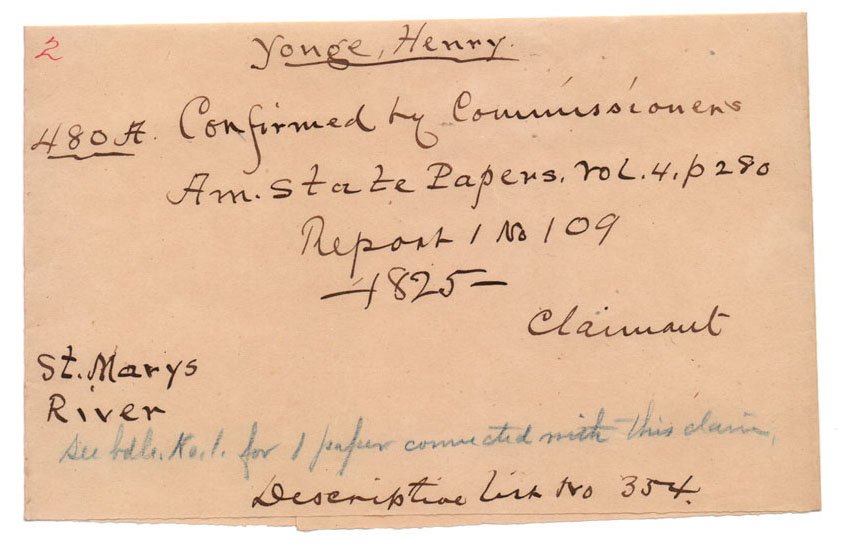 2
Yonge, Henry.
480 A. Confirmed by Commissioners
Am. State Papers. Vol. 4. p 280
Report 1 No 109
— 1825 —
Claimant
St. Marys
River
See bdle. No. 1. for 1 paper connected with this claim.
Descriptive list No 354.